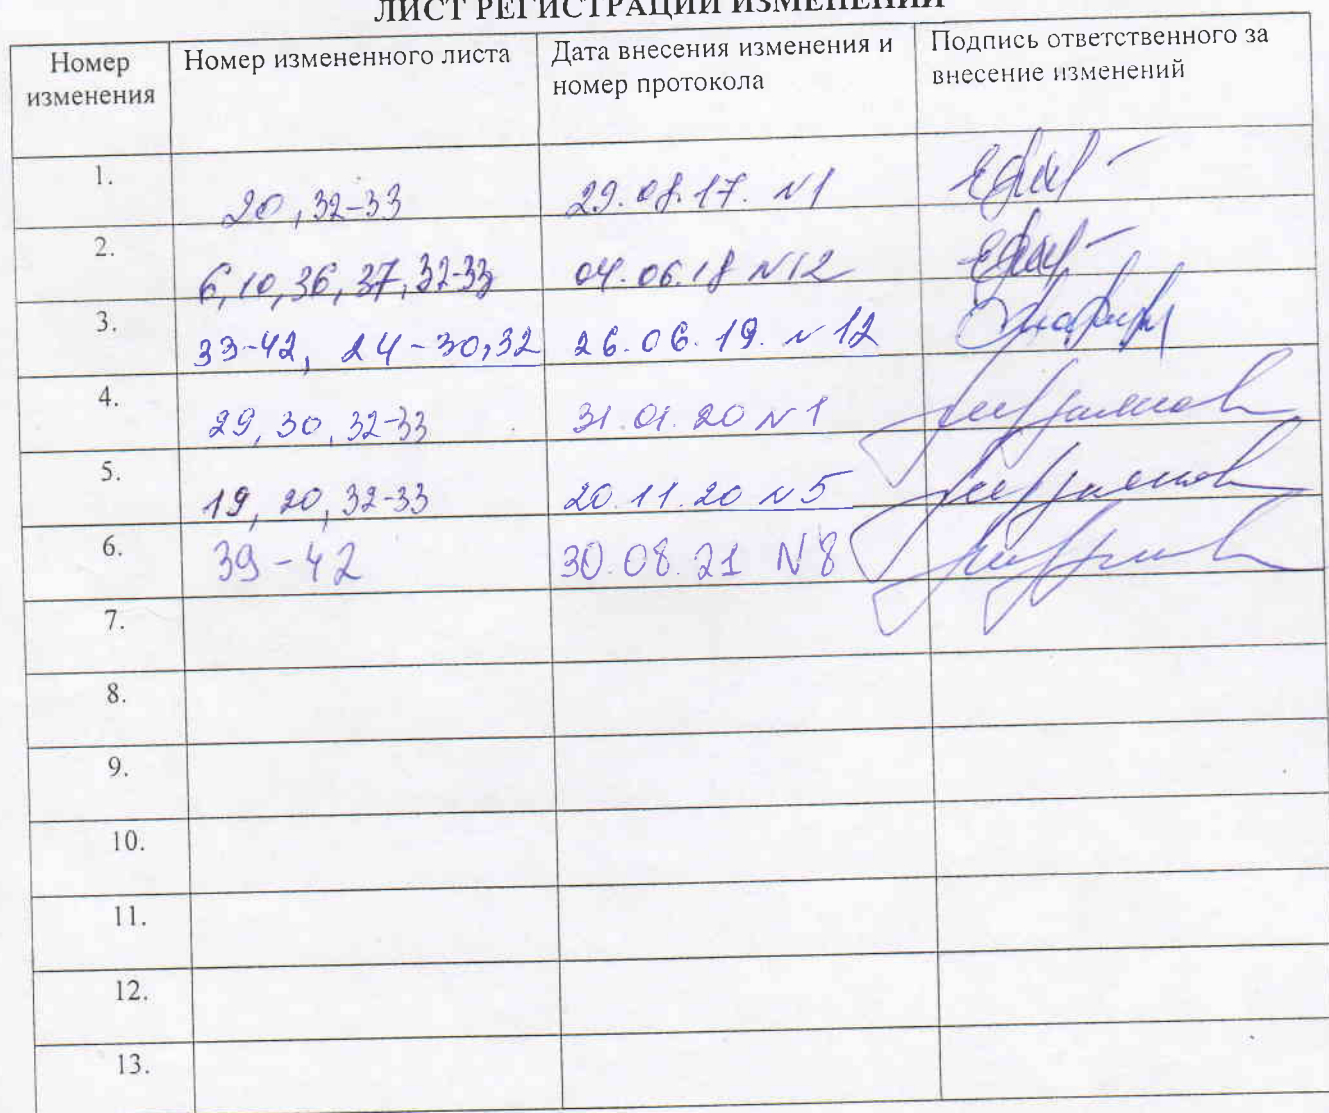 ЛИСТ РЕГИСТРАЦИИ ИЗМЕНЕНИЙ
Номер изменения
Номер измененного листа
Дата внесения изменения и номер протокола
Подпись ответственного за внесение изменений
1. 20, 32-33 29.08.17. N1
2. 6, 10, 36, 37, 32-33 04.06.18 N12
3. 33-42, 24-30, 32 26.06.19. N 12
4. 29, 30, 32-33 31.01.20 N1
5. 19, 20, 32-33 20.11.20 N5
6. 39-42 30.08.21 N8
7.
8.
9.
10.
11.
12.
13.